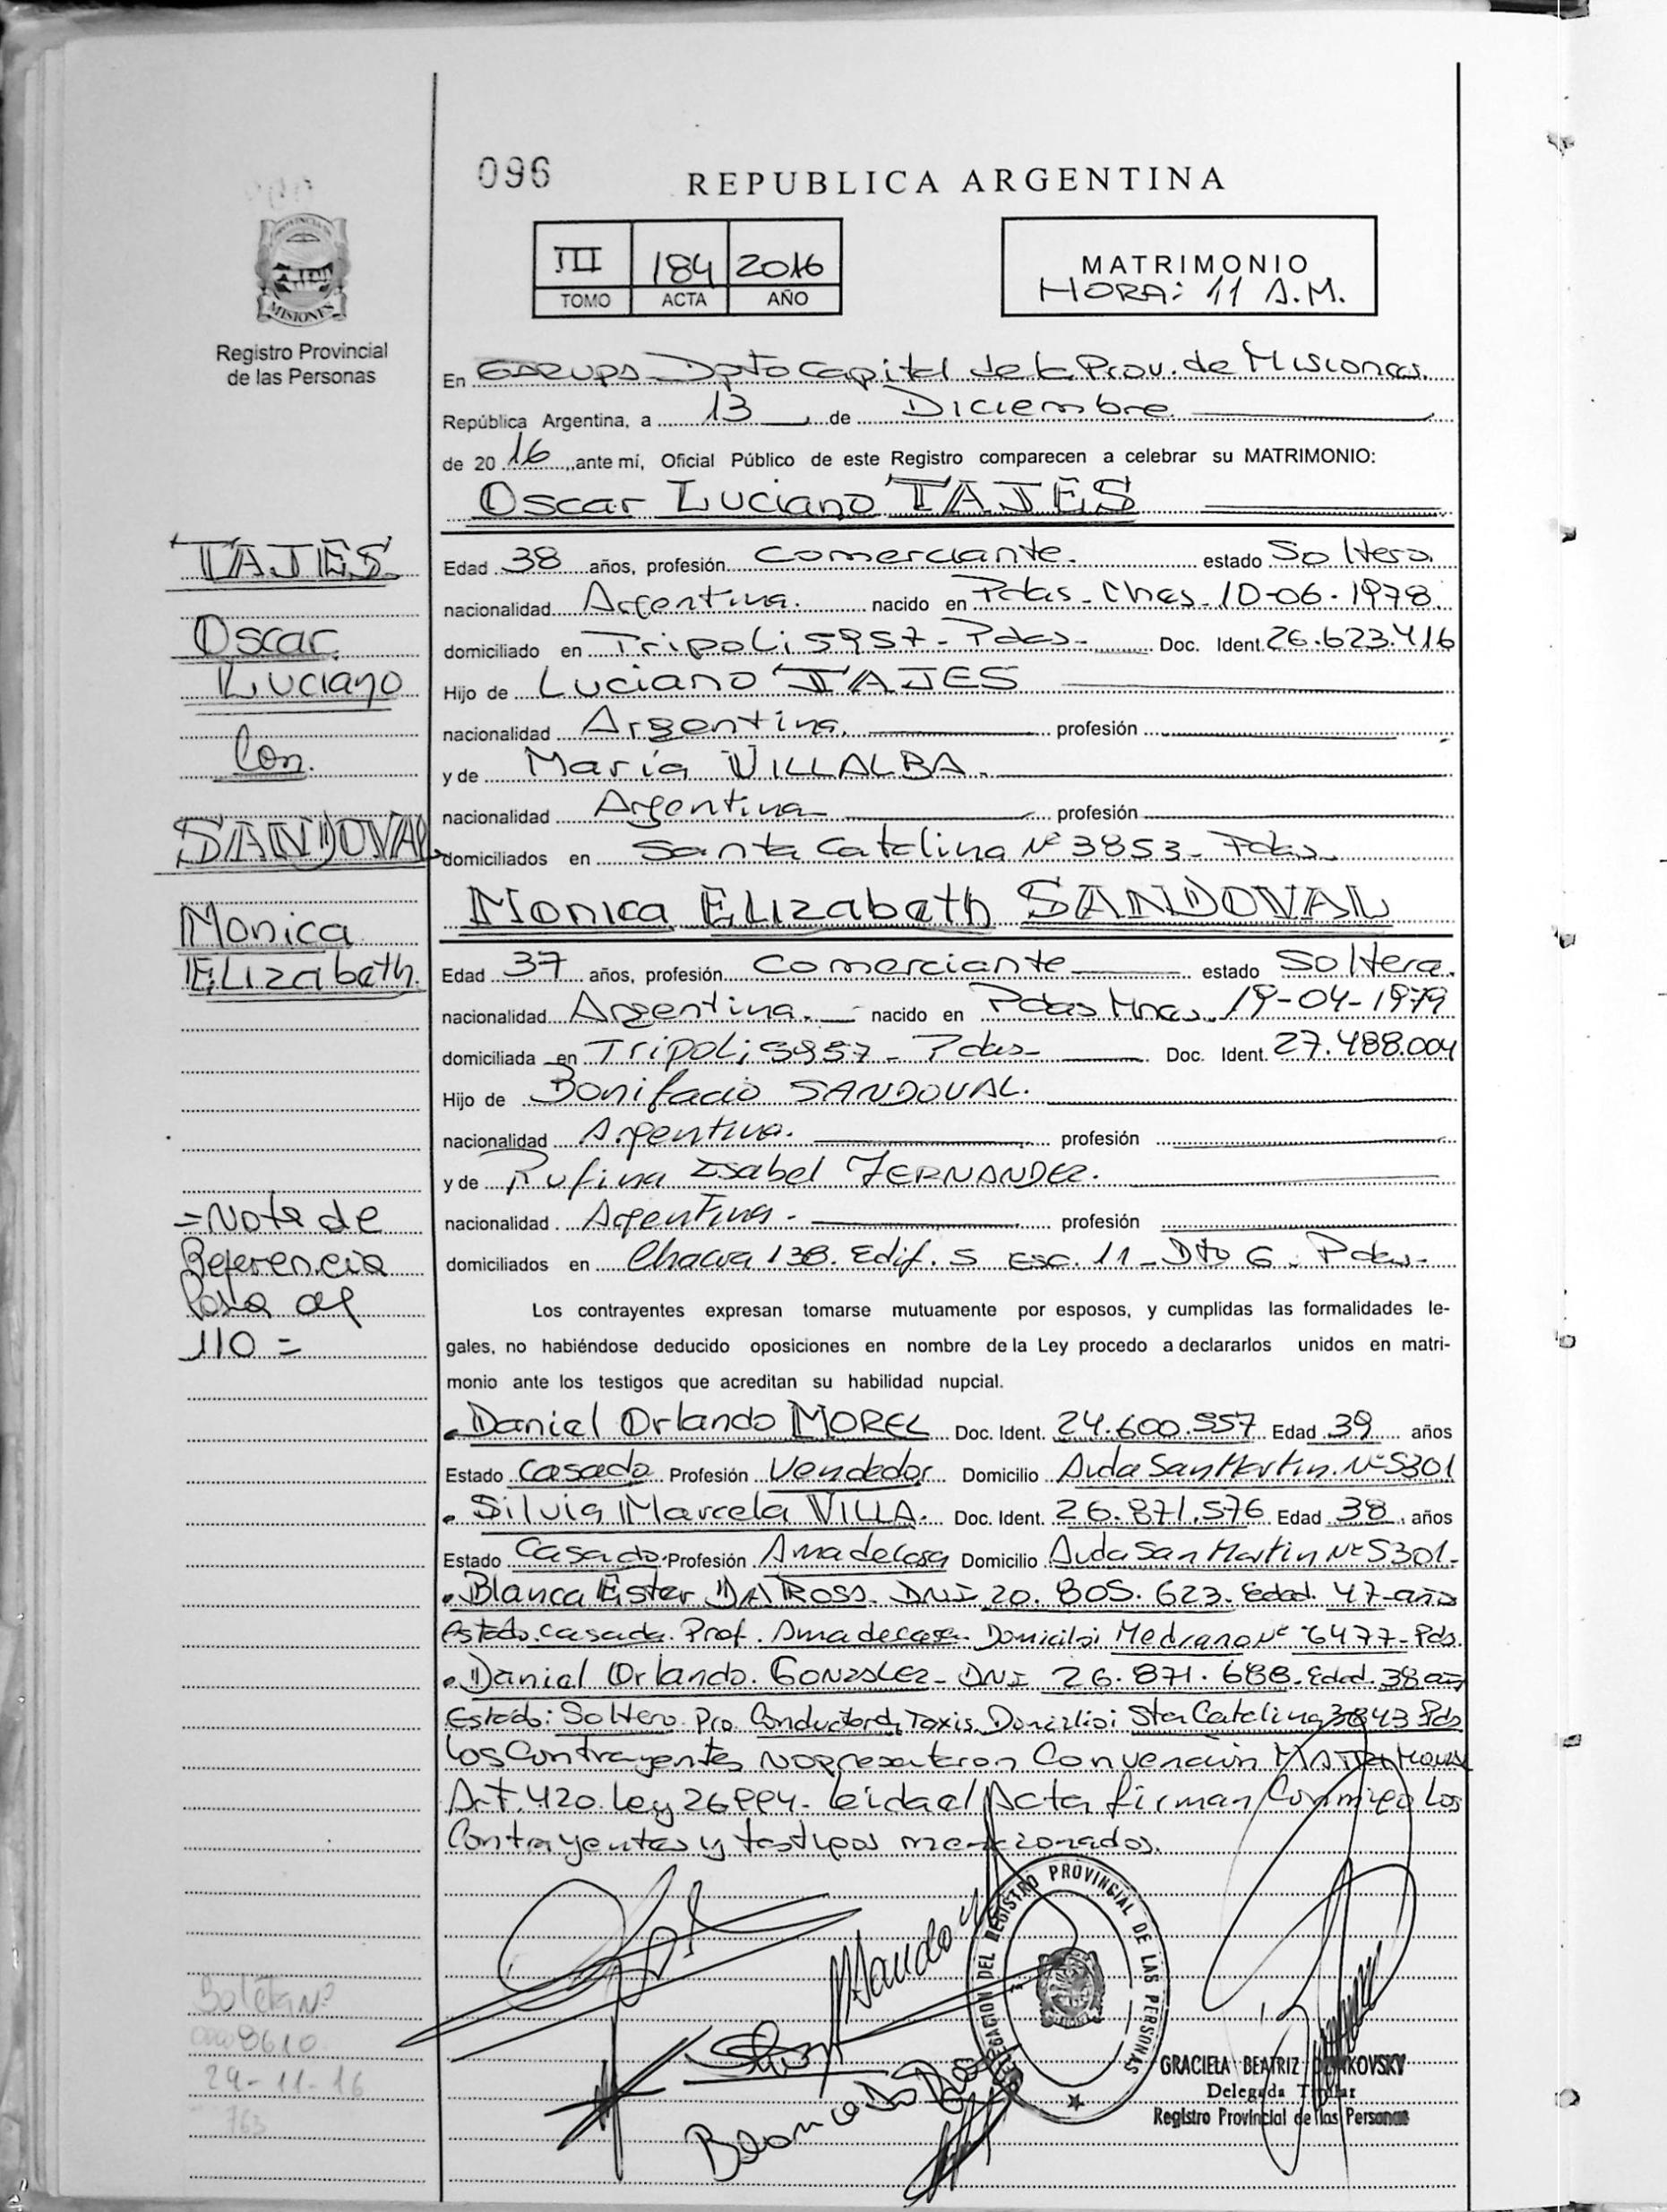 096
REPUBLICA ARGENTINA
PROVINCIA DE
MISIONES
Registro Provincial
de las Personas
III 184 2016
TOMO ACTA AÑO
MATRIMONIO
HORA: 11 A.M.
En GARUPA Dpto Capital de la Prov. de Misiones.
República Argentina, a 13 de Diciembre
de 20 16, ante mí, Oficial Público de este Registro comparecen a celebrar su MATRIMONIO:
Oscar Luciano TAJES
Edad 38 años, profesión Comerciante. estado Soltero.
nacionalidad Argentina. nacido en Pdas - Mnes - 10-06-1978.
domiciliado en Tripoli 5957 - Pdas - Doc. Ident. 26.623.416
Hijo de Luciano TAJES
nacionalidad Argentina. profesión
y de María VILLALBA.
nacionalidad Argentina profesión
domiciliados en Santa Catalina Nº 3853 - Pdas.
Monica Elizabeth SANDOVAL
Edad 37 años, profesión Comerciante estado Soltera.
nacionalidad Argentina. nacido en Pdas Mnes. 19-04-1979
domiciliada en Tripoli 5957 - Pdas - Doc. Ident. 27.488.004
Hijo de Bonifacio SANDOVAL.
nacionalidad Argentina. profesión
y de Rufina Isabel FERNANDEZ.
nacionalidad Argentina. profesión
domiciliados en Chacra 138. Edif. 5 Esc. 11 - Dto G - Pdas.
Los contrayentes expresan tomarse mutuamente por esposos, y cumplidas las formalidades le-
gales, no habiéndose deducido oposiciones en nombre de la Ley procedo a declararlos unidos en matri-
monio ante los testigos que acreditan su habilidad nupcial.
Daniel Orlando MOREL Doc. Ident. 24.600.557 Edad 39 años
Estado Casado Profesión Vendedor Domicilio Avda San Martin. Nº 5301
Silvia Marcela VILLA. Doc. Ident. 26.871.576 Edad 38 años
Estado Casada Profesión Ama de Casa Domicilio Avda San Martin Nº 5301-
Blanca Ester DA ROSA. DNI 20.805.623. Edad. 47 años
Estado. casada. Prof. Ama de casa. Domicilio: Medrano Nº 6477 - Pds.
Daniel Orlando. GONZALEZ - DNI 26.871.688. Edad. 38 años
Estado: Soltero Pro. Conductor de Taxis Domicilio: Sta Catalina 3843 Pds
Los Contrayentes no presentaron Convención MATRIMONIAL
Art. 420 Ley 26994. Leida el Acta firman Conmigo Los
Contrayentes y testigos mencionados.
TAJES
Oscar
Luciano
Con.
SANDOVAL
Monica
Elizabeth.
=Nota de
Referencia
Pasa al
110 =
Boleta Nº
0008610
29-11-16
763
MSandoval
Blanca Da Rosa
DELEGACION DEL REGISTRO PROVINCIAL DE LAS PERSONAS
GRACIELA BEATRIZ
Delegada Titular
Registro Provincial de las Personas